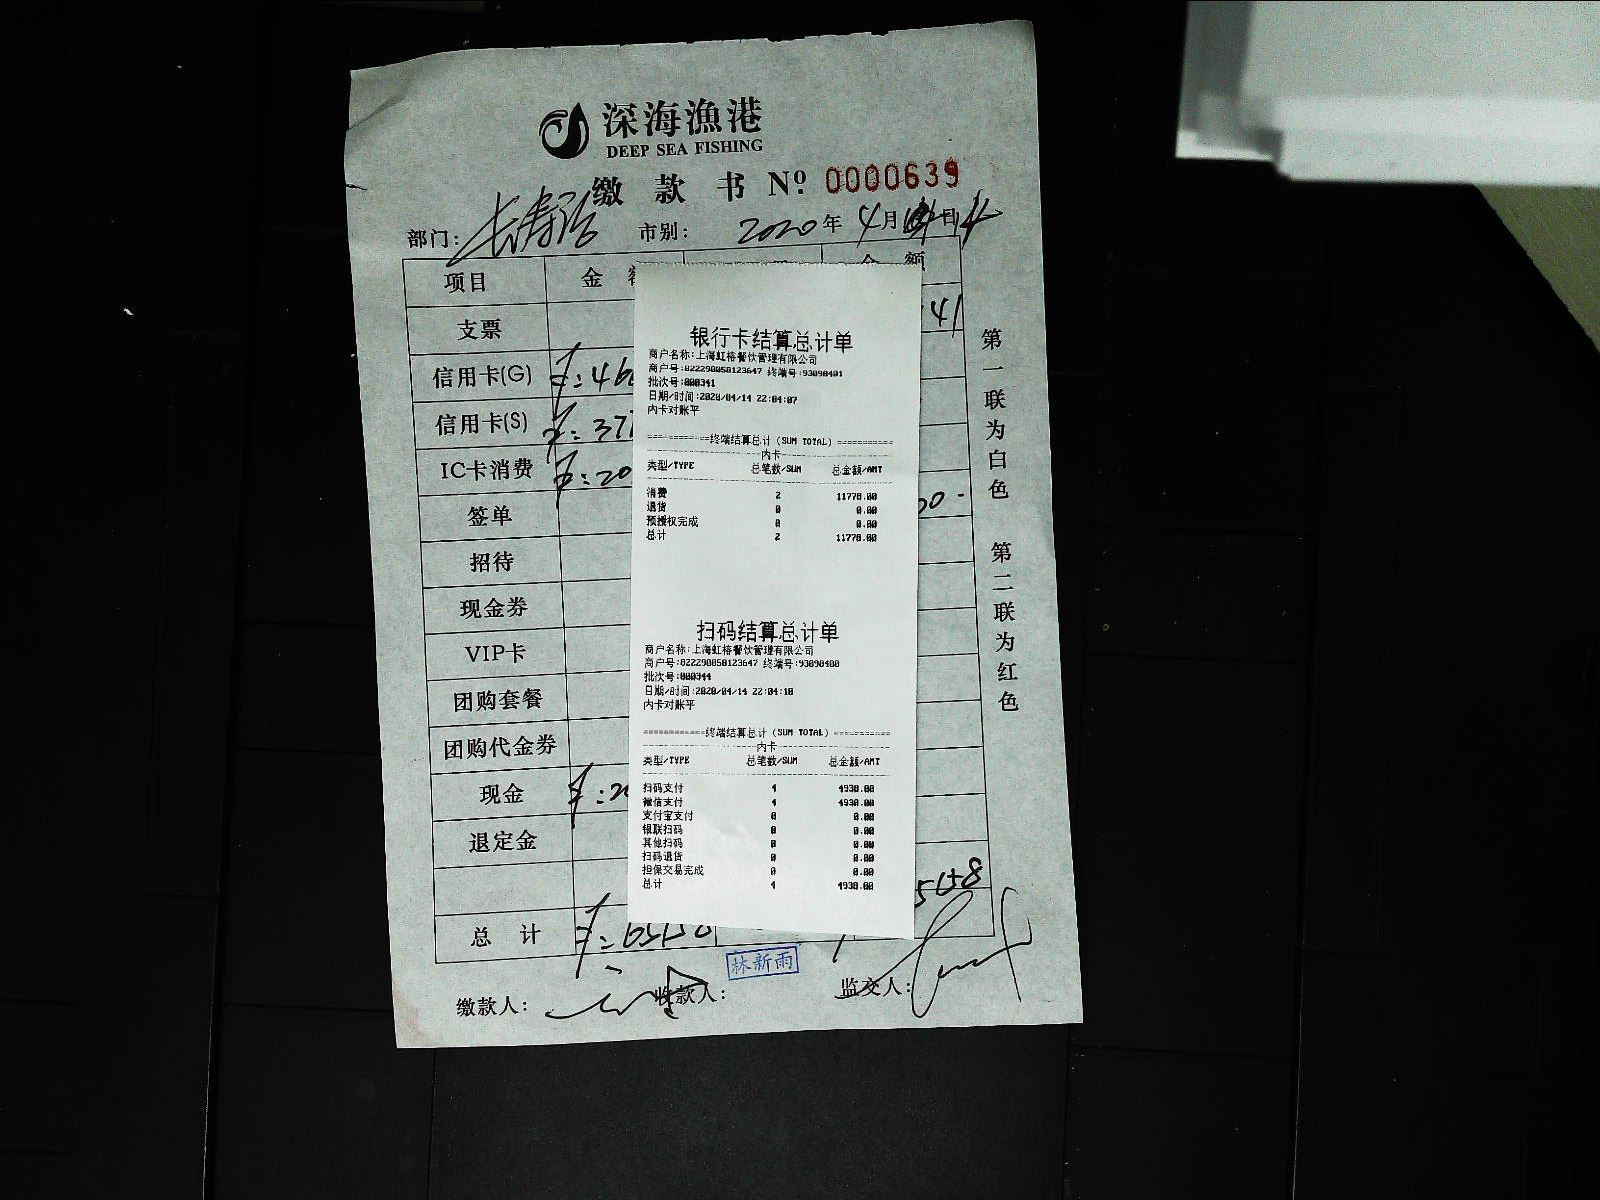 深海漁港
DEEP SEA FISHING
缴款书 Nº 0000639
部门: 市别: 2020年4月日14
项目 金 金额
支票 41
信用卡(G)
信用卡(S)
IC卡消费
签单
招待
现金券
VIP卡
团购套餐
团购代金券
现金
退定金
总计
缴款人: 收款人: 林新雨 监交人:
第一联为白色 第二联为红色
银行卡结算总计单
商户名称:上海虹椿餐饮管理有限公司
商户号:822290058123647 终端号:93090401
批次号:000341
日期/时间:2020/04/14 22:04:07
内卡对账平
===========终端结算总计(SUM TOTAL)==========
内卡
类型/TYPE 总笔数/SUM 总金额/AMT
消费 2 11778.00
退货 0 0.00
预授权完成 0 0.00
总计 2 11778.00
扫码结算总计单
商户名称:上海虹椿餐饮管理有限公司
商户号:822290058123647 终端号:93090400
批次号:000344
日期/时间:2020/04/14 22:04:10
内卡对账平
===========终端结算总计(SUM TOTAL)==========
内卡
类型/TYPE 总笔数/SUM 总金额/AMT
扫码支付 4 4930.00
微信支付 4 4930.00
支付宝支付 0 0.00
银联扫码 0 0.00
其他扫码 0 0.00
扫码退货 0 0.00
担保交易完成 0 0.00
总计 4 4930.00